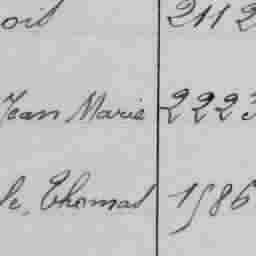 oit 2112
Jean Marie 2223
le, Thomas 1586